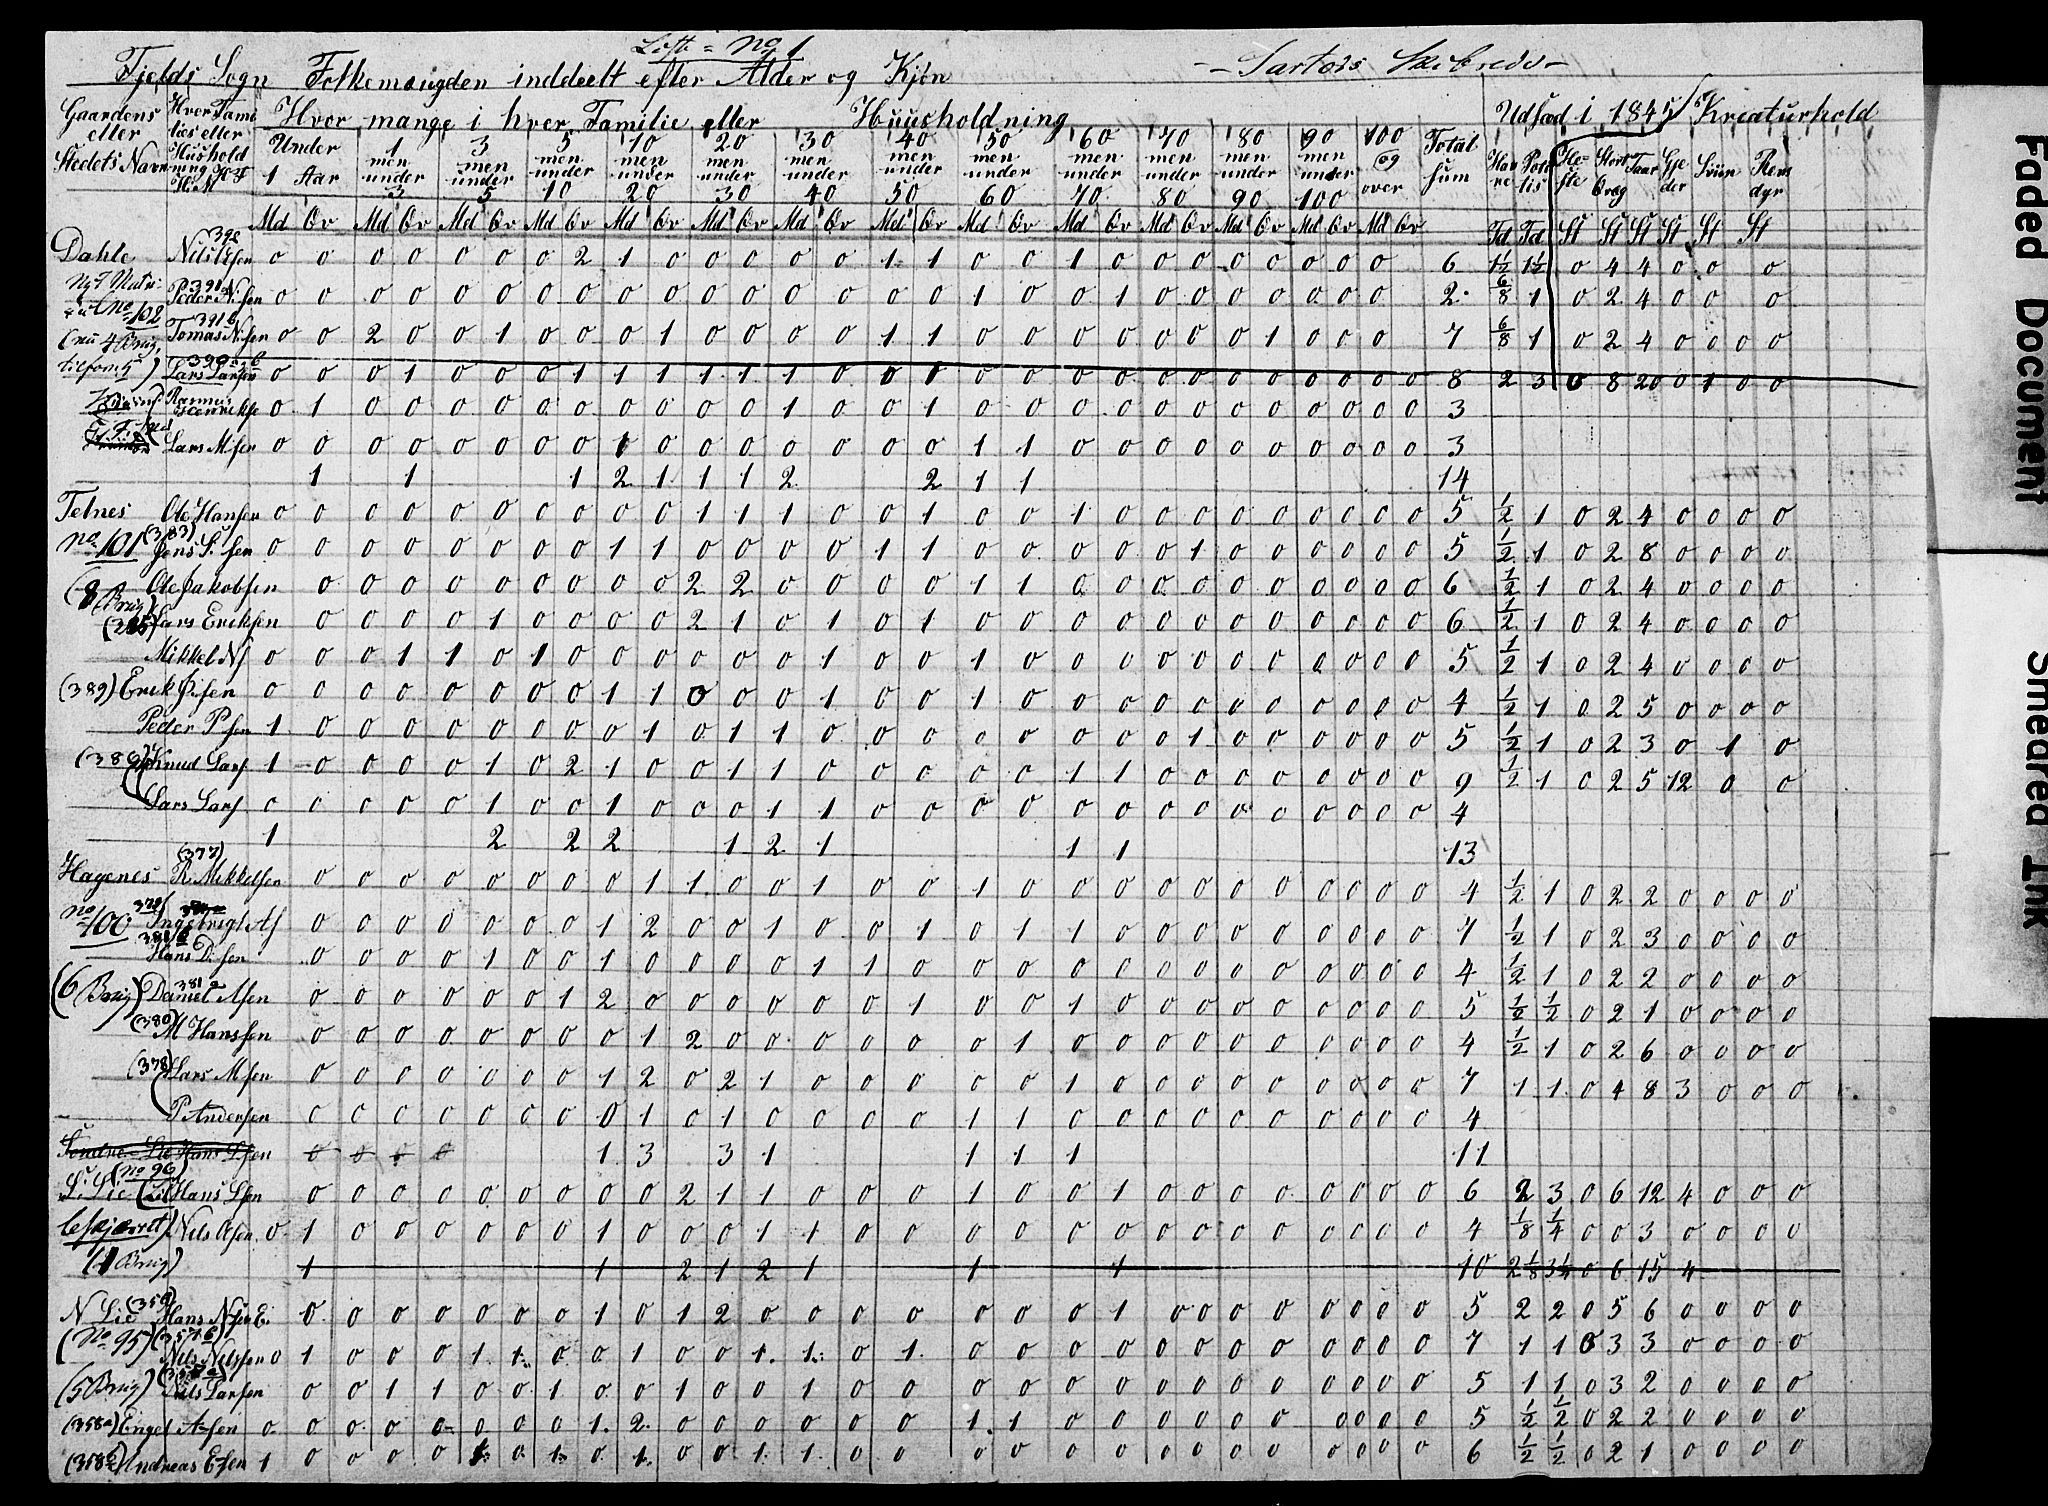 Listb = No 1
Fjelds Sogn Folkemængden inddeelt efter Alder og Kjøn -- Sartors Skibrede -
Gaardens eller Stedets Navn
Hver Families eller Hushold
Hvor mange i hver Familie eller Huusholdning
Udsæd i 1845 Kreaturhold
Under 1 Aar | 1 men under 3 | 3 men under 5 | 5 men under 10 | 10 men under 20 | 20 men under 30 | 30 men under 40 | 40 men under 50 | 50 men under 60 | 60 men under 70 | 70 men under 80 | 80 men under 90 | 90 men under 100 | 100 og over | Total Sum | Havre | Potetis | Heste | Stort Qvæg | Faar | Gjeder | Sviin | Rensdyr
Md Qv Md Qv Md Qv Md Qv Md Qv Md Qv Md Qv Md Qv Md Qv Md Qv Md Qv Md Qv Md Qv Md Qv Td Td St St St St St St
Dahle 392 0 0 0 0 0 0 0 2 1 0 0 0 0 0 1 1 0 0 1 0 0 0 0 0 0 0 0 6 1½ 1½ 0 4 4 0 0 0
No 102 Peder Nilsen 0 0 0 0 0 0 0 0 0 0 0 0 0 0 0 0 1 0 0 1 0 0 0 0 0 0 0 2 6/8 1 0 2 4 0 0 0
(nu 4 Brug Tomas Nilsen 0 0 2 0 0 1 0 0 0 1 0 0 0 0 1 1 0 0 0 0 0 0 0 1 0 0 0 7 6/8 1 0 2 4 0 0 0 0
Lars Larsen 0 0 0 1 0 0 0 1 1 1 1 1 1 0 0 1 0 0 0 0 0 0 0 0 0 0 0 0 8 2 3 0 8 20 0 1 0 0
0 1 0 0 0 0 0 0 0 0 0 0 1 0 0 1 0 0 0 0 0 0 0 0 0 0 0 0 3
Lars Msen 0 0 0 0 0 0 0 0 1 0 0 0 0 0 0 0 1 1 0 0 0 0 0 0 0 0 0 0 3
1 1 1 2 1 1 1 2 2 1 1 14
Telnes Ole Hansen 0 0 0 0 0 0 0 0 0 0 1 1 1 0 0 1 0 0 1 0 0 0 0 0 0 0 0 0 5 ½ 1 0 2 4 0 0 0 0
No 101 (383) Jens S.sen 0 0 0 0 0 0 0 0 1 1 0 0 0 0 1 1 0 0 0 0 0 1 0 0 0 0 0 0 5 ½ 1 0 2 8 0 0 0 0
(8 Brug) Ole Jakobsen 0 0 0 0 0 0 0 0 0 2 2 0 0 0 0 1 1 0 0 0 0 0 0 0 0 0 0 6 ½ 1 0 2 4 0 0 0 0
Lars Eriksen 0 0 0 0 1 0 0 0 0 2 1 0 1 0 1 0 0 0 0 0 0 0 0 0 0 0 0 6 ½ 1 0 2 4 0 0 0 0
Mikkel Ns 0 0 0 1 1 0 1 0 0 0 0 0 0 1 0 0 1 0 0 0 0 0 0 0 0 0 0 0 5 ½ 1 0 2 4 0 0 0 0
(389) Erik 0 0 0 0 0 0 0 0 1 1 0 0 0 1 0 0 1 0 0 0 0 0 0 0 0 0 0 0 4 ½ 1 0 2 5 0 0 0 0
Peder Psen 1 0 0 0 0 0 0 0 0 1 0 1 1 0 0 0 0 0 0 0 0 1 0 0 0 0 0 0 5 ½ 1 0 2 3 0 1 0
Knud Lars 1 0 0 0 0 1 0 2 1 0 0 1 1 0 0 0 0 0 1 1 0 0 0 0 0 0 0 0 9 ½ 1 0 2 5 12 0 0
Lars Lars 0 0 0 0 0 1 0 0 1 0 0 0 1 1 0 0 0 0 0 0 0 0 0 0 0 0 0 0 4
1 2 2 2 1 2 1 1 1 13
(377)
Hagenes R. Mikkelsen 0 0 0 0 0 0 0 0 1 1 0 0 1 0 0 1 0 0 0 0 0 0 0 0 0 0 0 4 ½ 1 0 2 2 0 0 0 0
No 100 Ingebrigt As 0 0 0 0 0 0 0 1 2 0 0 1 0 0 1 0 1 1 0 0 0 0 0 0 0 0 0 7 ½ 1 0 2 3 0 0 0 0
Hans D.sen 0 0 0 0 1 0 0 1 0 0 0 0 1 1 0 0 0 0 0 0 0 0 0 0 0 0 0 4 ½ 1 0 2 2 0 0 0 0
(6 Brug) 381a Daniel Msen 0 0 0 0 0 0 1 2 0 0 0 0 0 0 1 0 0 1 0 0 0 0 0 0 0 0 0 5 ½ ½ 0 2 1 0 0 0 0
(380) M Hanssen 0 0 0 0 0 0 0 0 1 2 0 0 0 0 0 0 1 0 0 0 0 0 0 0 0 0 0 4 ½ 1 0 2 6 0 0 0 0
(378) Lars Msen 0 0 0 0 0 0 0 1 2 0 2 1 0 0 0 0 0 1 0 0 0 0 0 0 0 0 0 7 1 1 0 4 8 3 0 0 0
P. Andersen 0 0 0 0 0 0 0 0 1 0 1 0 0 0 0 1 1 0 0 0 0 0 0 0 0 0 0 4
Søndre Lie Hans Lsen 0 0 0 0 1 3 3 1 1 1 1 11
(No 96)
S. Lie Hans Lsen 0 0 0 0 0 0 0 0 0 2 1 1 0 0 0 1 0 0 1 0 0 0 0 0 0 0 0 6 2 3 0 6 12 4 0 0 0
Nils Olsen 0 1 0 0 0 0 0 0 1 0 0 0 1 1 0 0 0 0 0 0 0 0 0 0 0 0 0 0 4 1/8 ¼ 0 0 3 0 0 0 0
(1 Brug) 1 1 2 1 2 1 1 1 10 2 1/8 3 ¼ 0 6 15 4
N Lie (359) Hans Nsen 0 0 0 0 0 0 0 1 0 1 2 0 0 0 0 0 0 0 1 0 0 0 0 0 0 0 0 5 2 2 0 5 6 0 0 0 0
(No 95) (357b) Nils Nilssen 0 1 0 0 0 1 1 0 0 1 0 0 1 1 0 1 0 0 0 0 0 0 0 0 0 0 0 0 7 1 1 0 3 3 0 0 0 0
(5 Brug) Nils Larsen 0 0 1 1 0 0 1 0 0 1 0 0 1 0 0 0 0 0 0 0 0 0 0 0 0 0 0 5 1 1 0 3 2 0 0 0 0
(358a) Engel A-sen 0 0 0 0 0 0 0 0 1 2 0 0 0 0 0 0 1 1 0 0 0 0 0 0 0 0 0 0 5 ½ ½ 0 2 2 0 0 0 0
(358b) Andreas E-sen 1 0 0 0 0 1 0 1 0 1 0 0 1 1 0 0 0 0 0 0 0 0 0 0 0 0 0 0 6 ½ ½ 0 2 1 0 0 0 0
Faded Document
Smeared Ink